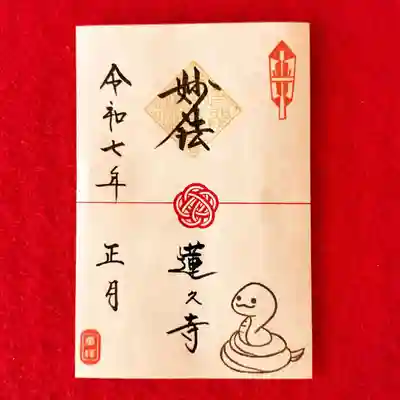 妙法
蓮久寺
令和七年
正月